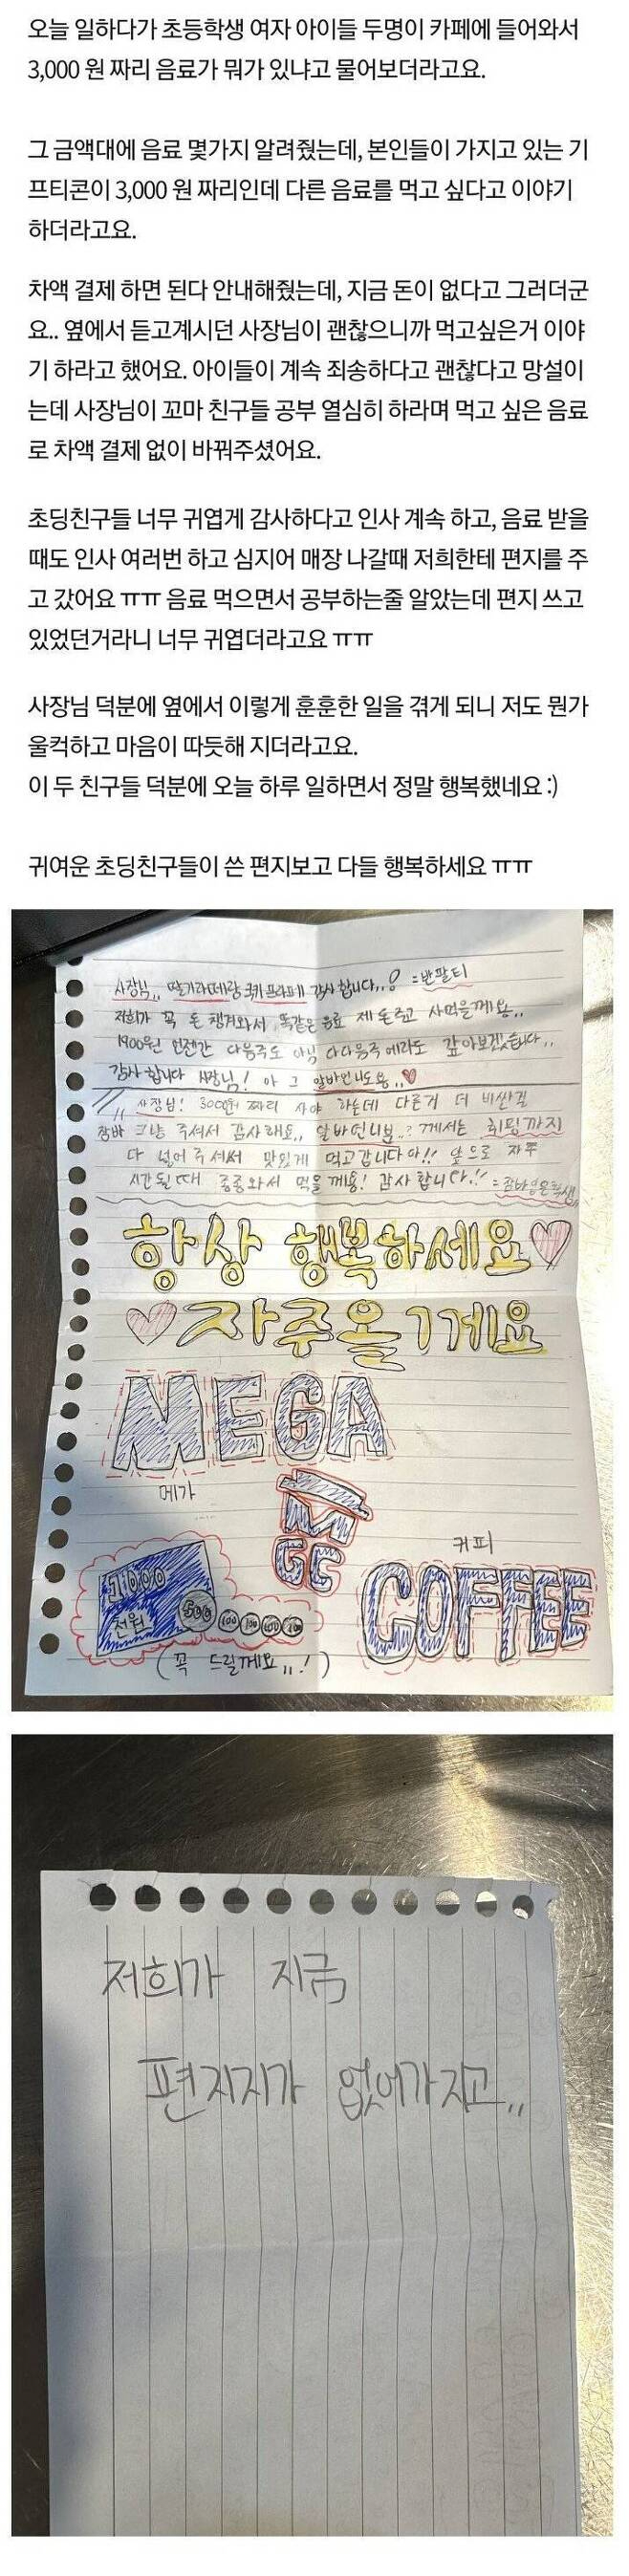 오늘 일하다가 초등학생 여자 아이들 두명이 카페에 들어와서
3,000 원 짜리 음료가 뭐가 있냐고 물어보더라고요.
그 금액대에 음료 몇가지 알려줬는데, 본인들이 가지고 있는 기
프티콘이 3,000 원 짜리인데 다른 음료를 먹고 싶다고 이야기
하더라고요.
차액 결제 하면 된다 안내해줬는데, 지금 돈이 없다고 그러더군
요.. 옆에서 듣고계시던 사장님이 괜찮으니까 먹고싶은거 이야
기 하라고 했어요. 아이들이 계속 죄송하다고 괜찮다고 망설이
는데 사장님이 꼬마 친구들 공부 열심히 하라며 먹고 싶은 음료
로 차액 결제 없이 바꿔주셨어요.
초딩친구들 너무 귀엽게 감사하다고 인사 계속 하고, 음료 받을
때도 인사 여러번 하고 심지어 매장 나갈때 저희한테 편지를 주
고 갔어요 ㅠㅠ 음료 먹으면서 공부하는줄 알았는데 편지 쓰고
있었던거라니 너무 귀엽더라고요 ㅠㅠ
사장님 덕분에 옆에서 이렇게 훈훈한 일을 겪게 되니 저도 뭔가
울컥하고 마음이 따듯해 지더라고요.
이 두 친구들 덕분에 오늘 하루 일하면서 정말 행복했네요 :)
귀여운 초딩친구들이 쓴 편지보고 다들 행복하세요 ㅠㅠ
사장님,, 딸기라떼랑 쿠키프라페 감사합니다..! =반팔티
저희가 꼭 돈 챙겨와서 똑같은 음료 제 돈주고 사먹을께용..
1900원 언젠간 다음주도 아닌 다다음주에라도 갚아보겠습니다..
감사합니다 사장님! 아 그 알바언니도용..♥
사장님! 3000원 짜리 사야 하는데 다른거 더 비싼걸
그냥 주셔서 감사해요,, 알바언니분..? 께서는 휘핑까지
다 넣어주셔서 맛있게 먹고갑니다아!! 앞으로 자주
시간될때 종종와서 먹을께용! 감사합니다!!
항상 행복하세요♡
♡자주올게요
MEGA
메가
M
GC
커피
COFFEE
1000
천원
500
100
100
100
100
(꼭 드릴께요,,!)
저희가 지금
편지지가 없어가지고..